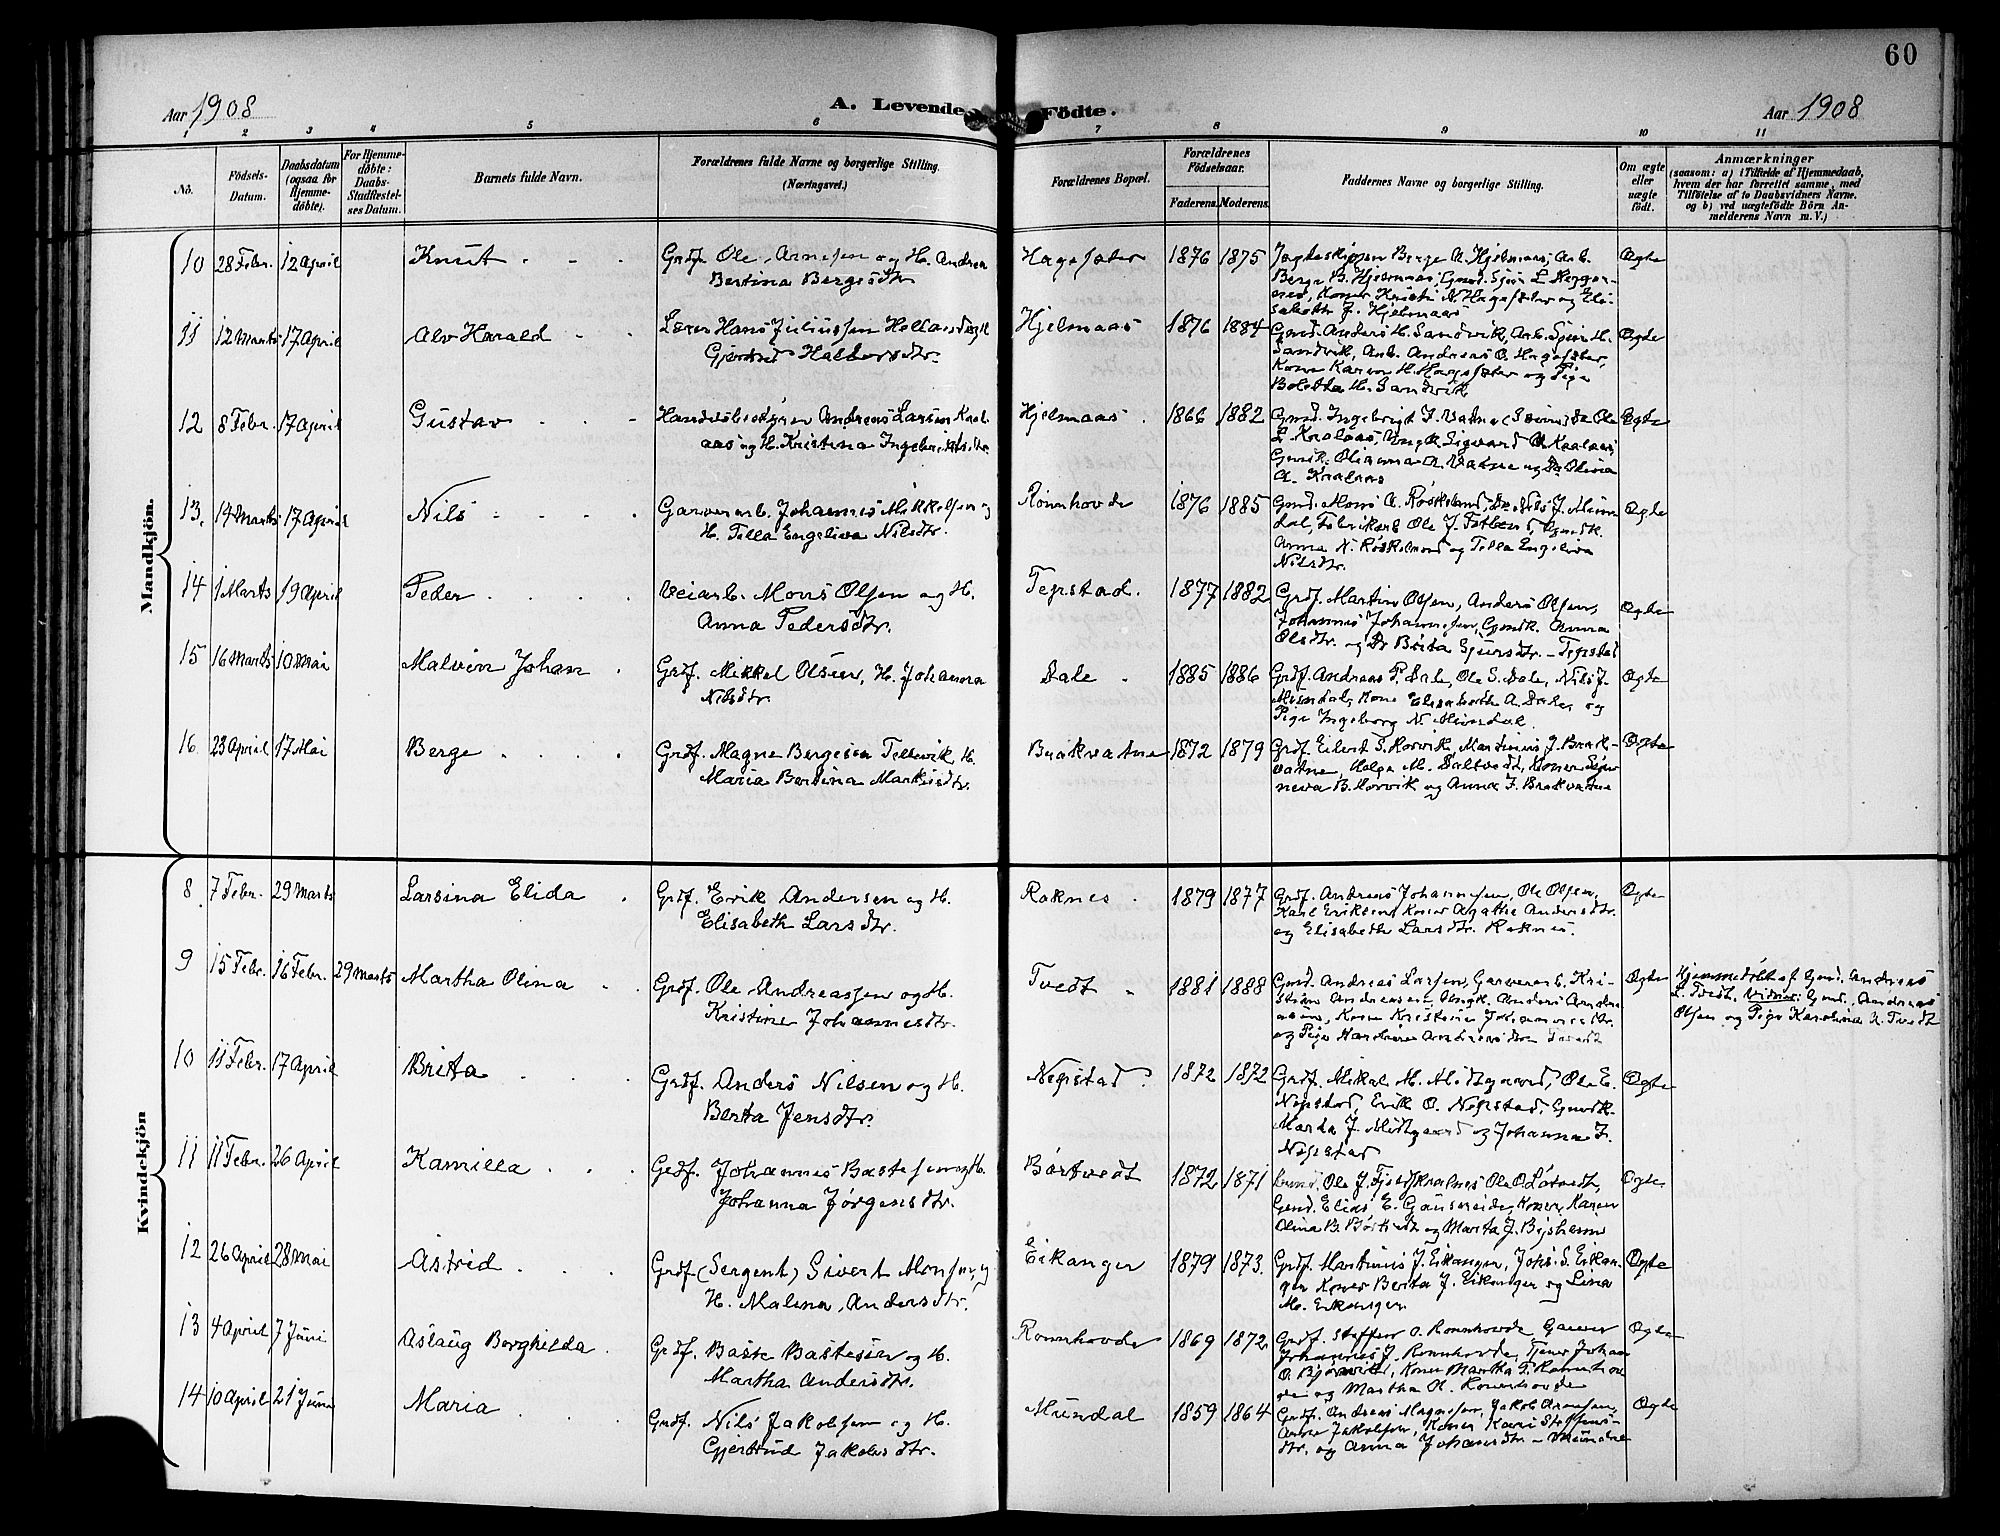 60
Aar 1908
A. Levende Födte.
Aar 1908
1 2 3 4 5 6 7 8 9 10 11
No.
Födsels-Datum.
Daabsdatum (ogsaa for Hjemme-döbte).
For Hjemme-döbte: Daabs-Stadfæstel-ses Datum.
Barnets fulde Navn.
Forældrenes fulde Navne og borgerlige Stilling. (Næringsvei.)
Forældrenes Bopæl.
Forældrenes Födselsaar.
Faderens. Moderens.
Faddernes Navne og borgerlige Stilling.
Om ægte eller uægte födt.
Anmærkninger
(saasom: a) i Tilfælde af Hjemmedaab,
hvem der har forrettet samme, med
Tilföielse af to Daabsvidners Navne.
og b) ved uægtefödte Börn An-
melderens Navn m. V.)
Mandkjön.
10 28 Febr. 12 April Knut Grdf. Ole Arnesen og H. Andrea
Bertina Bergesdtr. Hagesæter 1876 1875 Ægte
11 12 Marts 17 April Alv Harald Lærer Hans Juliussen Hellandsdag H.
Gjertrud Haldorsdtr. Hjelmaas 1876 1884 Gmd. Anders H. Sandvik, Arb. Sjur H.
Sandvik, Arb. Andreas O. Hagesæter,
Kone Karen H. Hagesæter og Pige
Boletha H. Sandvik Ægte
12 8 Febr. 17 April Gustav Handelsbestyrer Andreas Larsen Knal-
aas og H. Kristina Ingebrigtsdtr. Hjelmaas 1866 1882 Ægte
13. 14 Marts 17 April Nils Garverarb. Johannes Mikkelsen og
H. Tella Engelina Nilsdtr. Romhovde 1876 1885
Anna N. Röskeland og Tella Engelina
Nilsdtr. Ægte
14 1 Marts 19 April Peder Veiarb. Mons Olsen og H.
Anna Pedersdtr. Tepstad. 1877 1882 Grdf. Martin Olsen, Anders Olsen,
Johannes Johannesen, Gmdk. Anna
Olsdtr. og Do Brita Sjursdtr. - Tepstad Ægte
15 16 Marts 10 Mai Malvin Johan Grdf. Mikkel Olsen, H. Johanna
Nilsdtr. Dale 1885 1886 Grdf. Andreas P. Dale, Ole S. Dale, Nils J.
Mundal, Kone Elisabeth A. Dale, og
Pige Ingeborg N. Mundal. Ægte
16. 23 April 17 Mai Berge Grdf. Magne Bergesen Tellevik, H.
Maria Bertina Markusdtr. Brakvatne 1872 1879 Grdf. Eilert S. Horvik, Martinus J. Brak-
vatne, Helge M. Daltvedt, Koner Syn-
neva B. Horvik og Anna J. Brakvatne Ægte
Kvindekjön
8 7 Febr. 29 Marts Larsina Elida Grdf. Erik Andersen og H.
Elisabeth Larsdtr. Roknes 1879 1877 Grdf. Andreas Johannesen, Ole Olsen,
Karl Eriksen, Koner Agathe Andersdtr.
og Elisabeth Larsdtr. Roknes. Ægte
9 15 Febr. 16 Febr. 29 Marts Martha Olina Grdf. Ole Andreassen og H.
Kristine Johannesdtr. Tvedt 1881 1888 Gmd. Andreas Larsen, Garverarb. Kri-
stian Andreasen, Ungk. Anders Andre-
asen, Kone Kristine Johannesdtr.
Ægte Hjemmedöbt af Gmd. Andreas
L. Tvedt, Vidner: Gmd. Andreas
Olsen og Pige Karolina A. Tvedt
10 11 Febr. 17 April Brita Grdf. Anders Nilsen og H.
Berta Jensdtr. Nepstad. 1872 1872 Grdf. Mikal M. Midtgaard, Ole E.
Nepstad, Erik O. Nepstad, Gmdk.
Marta J. Midtgaard og Johanna J.
Nepstad Ægte
11 11 Febr. 26 April Kamilla Grdf. Johannes Bastesen og H.
Johanna Jørgensdtr. Børtvedt 1872 1871
Gmd. Elias E. Gausereide, Koner Karen
Olina B. Børtvedt og Marta J. Bysheim Ægte
12 26 April 28 Mai Astrid Grdf. (Sergent) Sivert Monsen, og
H. Malena Andersdtr. Eikanger 1879 1873. Grdf. Martinus J. Eikanger, Johs. S. Eikan-
ger Koner Berta J. Eikanger og Lina
M. Eikanger Ægte
13 4 April 7 Juni Aslaug Borghilda Grdf. Baste Bastesen og H.
Martha Andersdtr. Romhovde 1869 1872 Grdf. Steffen O. Romhovde, Garver
Johannes J. Romhovde, Tjener Johan
O. Bjørsvik, Koner Martha P. Romhov-
de og Martha O. Romhovde Ægte
14 10 April 21 Juni Maria Grdf. Nils Jakobsen og H.
Gjertrud Jakobsdtr. Mundal 1859 1864 Grdf. Andreas Magnesen, Jakob Arnesen,
Arne Jakobsen, Koner Kari Steffens-
dtr. og Anna Johansdtr. - Mundal Ægte